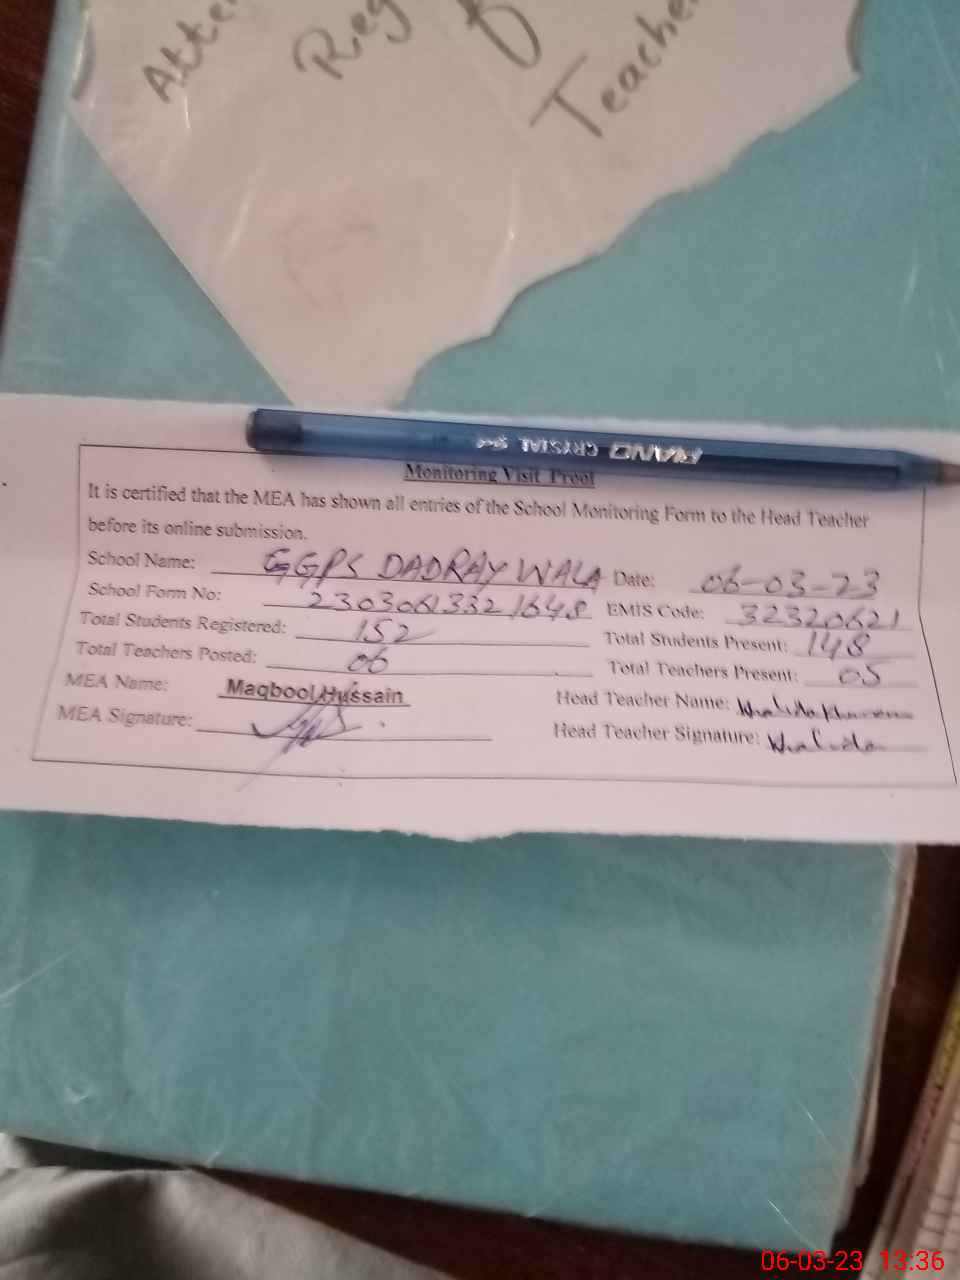 Reg
Teache
PIANO CRYSTAL
Monitoring Visit Proof
It is certified that the MEA has shown all entries of the School Monitoring Form to the Head Teacher
before its online submission.
School Name: GGPS DADRAY WALA Date: 06-03-23
School Form No: 23030613321648 EMIS Code: 32320621
Total Students Registered: 152 Total Students Present: 148
Total Teachers Posted: 06 Total Teachers Present: 05
MEA Name: Maqbool Hussain Head Teacher Name: Khalida
MEA Signature: Head Teacher Signature: Khalida
06-03-23 13:36